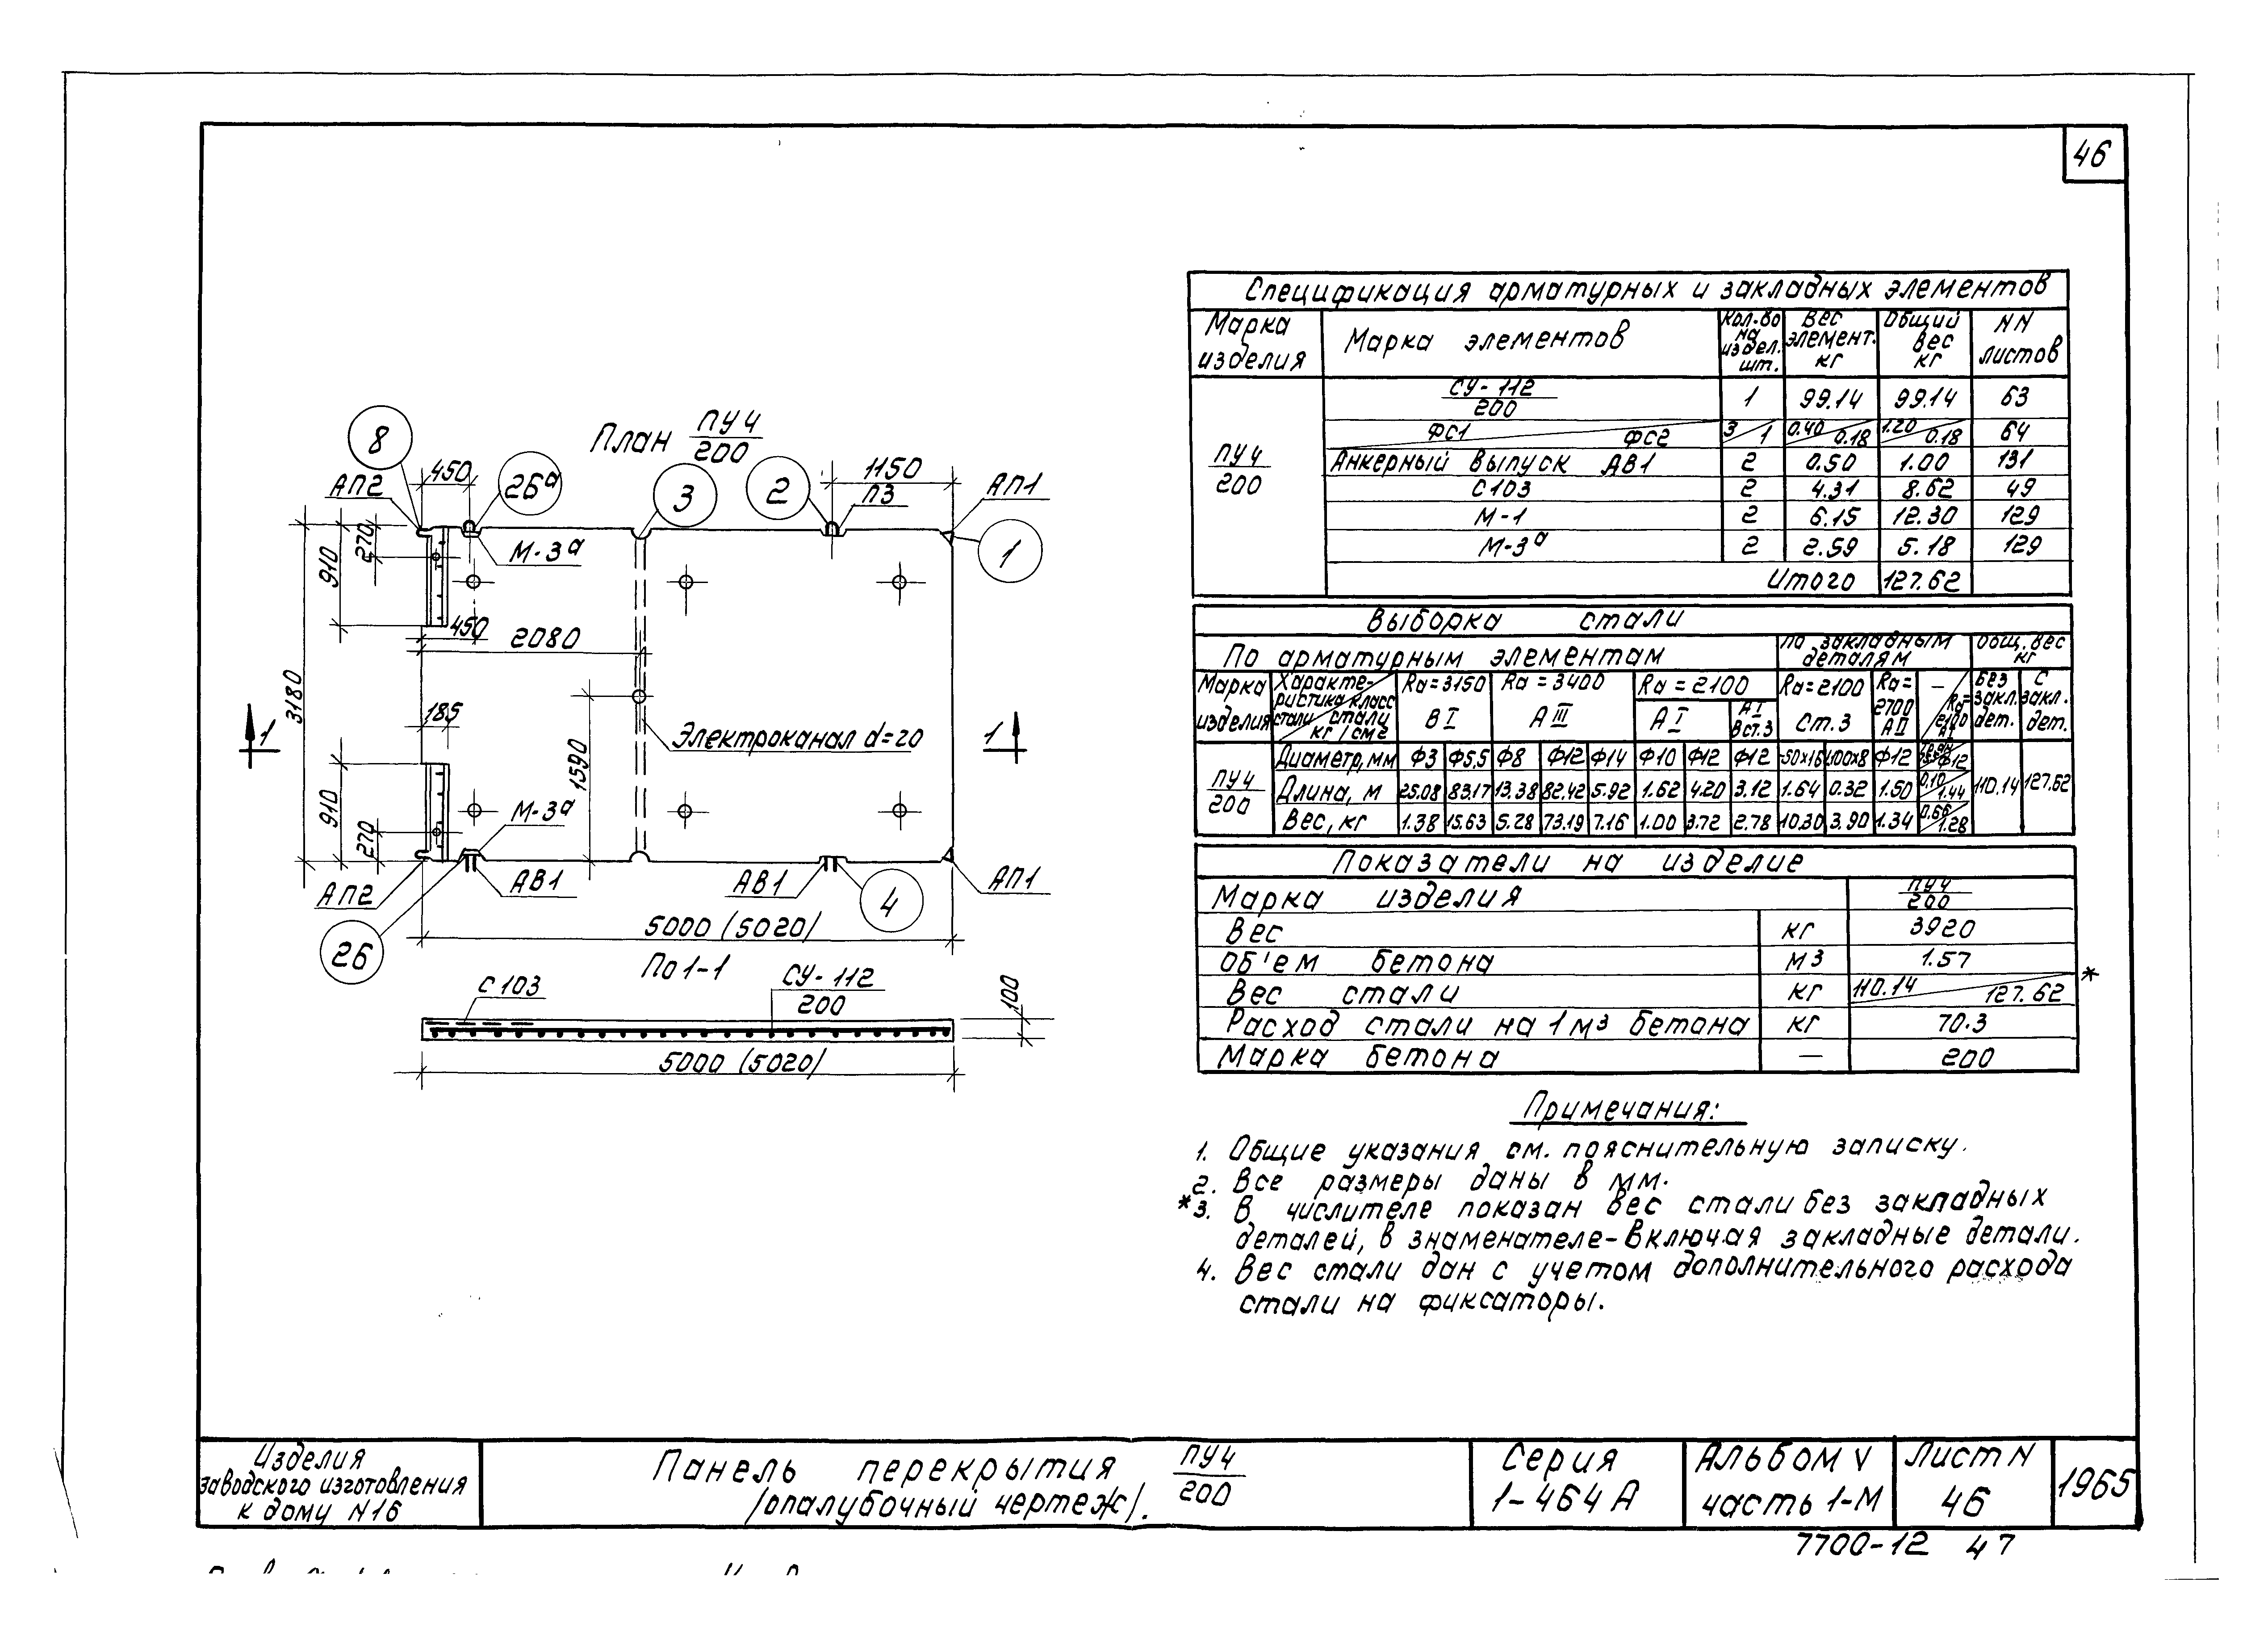 46
План ПУ4/200
8
26а
3
2
1
450
1150
АП2
П3
АП1
М-3а
270
910
450
2080
3180
185
1
1
Электроканал d=20
1590
910
270
М-3а
АП2
АВ1
АВ1
АП1
26
4
5000 (5020)
По 1-1
С103
СУ-112/200
100
5000 (5020)
Спецификация арматурных и закладных элементов
Марка изделия | Марка элементов | Кол-во на издел. шт. | Вес элемент. кг | Общий вес кг | NN листов
ПУ4/200
СУ-112/200 | 1 | 99.14 | 99.14 | 63
ФС1 / ФС2 | 3/1 | 0.40/0.18 | 1.20/0.18 | 64
Анкерный выпуск АВ1 | 2 | 0.50 | 1.00 | 131
С103 | 2 | 4.31 | 8.62 | 49
М-1 | 2 | 6.15 | 12.30 | 129
М-3а | 2 | 2.59 | 5.18 | 129
Итого | 127.62
Выборка стали
По арматурным элементам | по закладным деталям | общ. вес кг
Марка изделия | Характеристика стали / класс стали кг/см2 | Rа=3150 ВI | Rа=3400 АIII | Rа=2100 АI | АI Вст.3 | Rа=2100 Ст.3 | Rа=2700 АII | – / Rа=2100 АI | без закл. дет. | с закл. дет.
ПУ4/200
Диаметр, мм | Ф3 | Ф5,5 | Ф8 | Ф12 | Ф14 | Ф10 | Ф12 | Ф12 | -50×16 | -100×8 | Ф12 | Ф12
Длина, м | 25.08 | 83.17 | 13.38 | 82.42 | 5.92 | 1.62 | 4.20 | 3.12 | 1.64 | 0.32 | 1.50 | 0.10/1.44 | 110.14 | 127.62
Вес, кг | 1.38 | 15.63 | 5.28 | 73.19 | 7.16 | 1.00 | 3.72 | 2.78 | 10.30 | 3.90 | 1.34 | 0.66/1.28
Показатели на изделие
Марка изделия | ПУ4/200
Вес | кг | 3920
Об'ем бетона | м3 | 1.57
Вес стали | кг | 110.14/127.62 *
Расход стали на 1м3 бетона | кг | 70.3
Марка бетона | — | 200
Примечания:
1. Общие указания см. пояснительную записку.
2. Все размеры даны в мм.
*3. В числителе показан вес стали без закладных
деталей, в знаменателе-включая закладные детали.
4. Вес стали дан с учетом дополнительного расхода
стали на фиксаторы.
Изделия
заводского изготовления
к дому N16
Панель перекрытия ПУ4/200
/опалубочный чертеж/.
Серия
1-464А
Альбом V
часть 1-М
Лист N
46
1965
7700-12 47